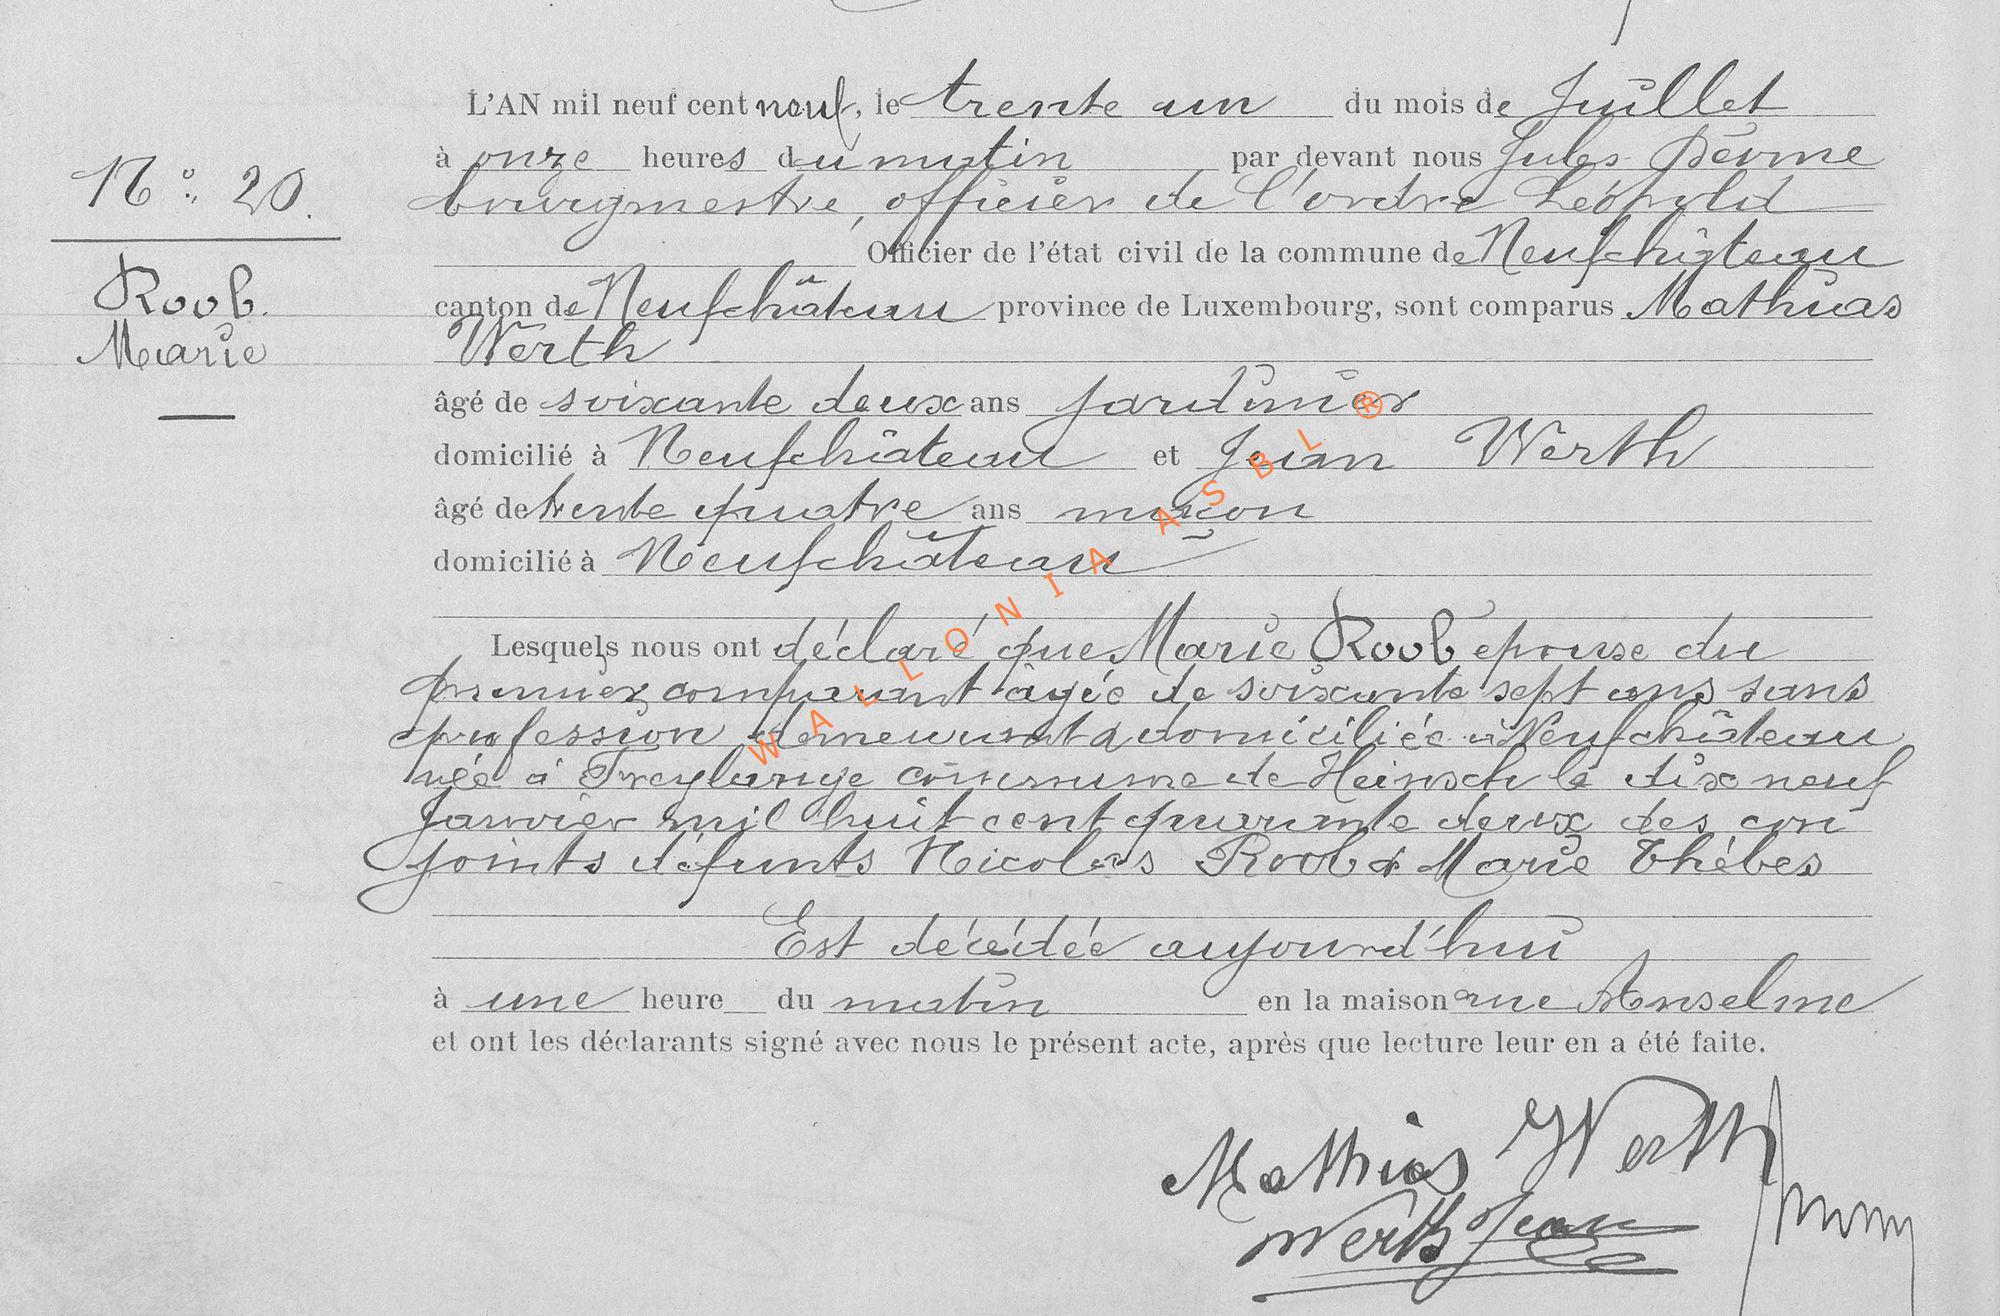 L'AN mil neuf cent neuf, le trente un du mois de Juillet
à onze heures du matin par devant nous Jules
bourgmestre, officier de l'ordre Léopold
Officier de l'état civil de la commune de Neufchâteau
canton de Neufchâteau province de Luxembourg, sont comparus Mathias
Werth
âgé de soixante deux ans jardinier
domicilié à Neufchâteau et Jean Werth
âgé de trente quatre ans maçon
domicilié à Neufchâteau
Lesquels nous ont déclaré que Marie Roob épouse du
premier comparant âgée de soixante sept ans sans
profession demeurant & domiciliée à Neufchâteau
née à Freylange commune de Heinsch le dix neuf
Janvier mil huit cent quarante deux des con
joints défunts Nicolas Roob & Marie Thébes
Est décédée aujourd'hui
à une heure du matin en la maison rue Anselme
et ont les déclarants signé avec nous le présent acte, après que lecture leur en a été faite.
Mathias Werth
Werth Jean
N° 20.
Roob.
Marie
WALLONIA ASBL ®